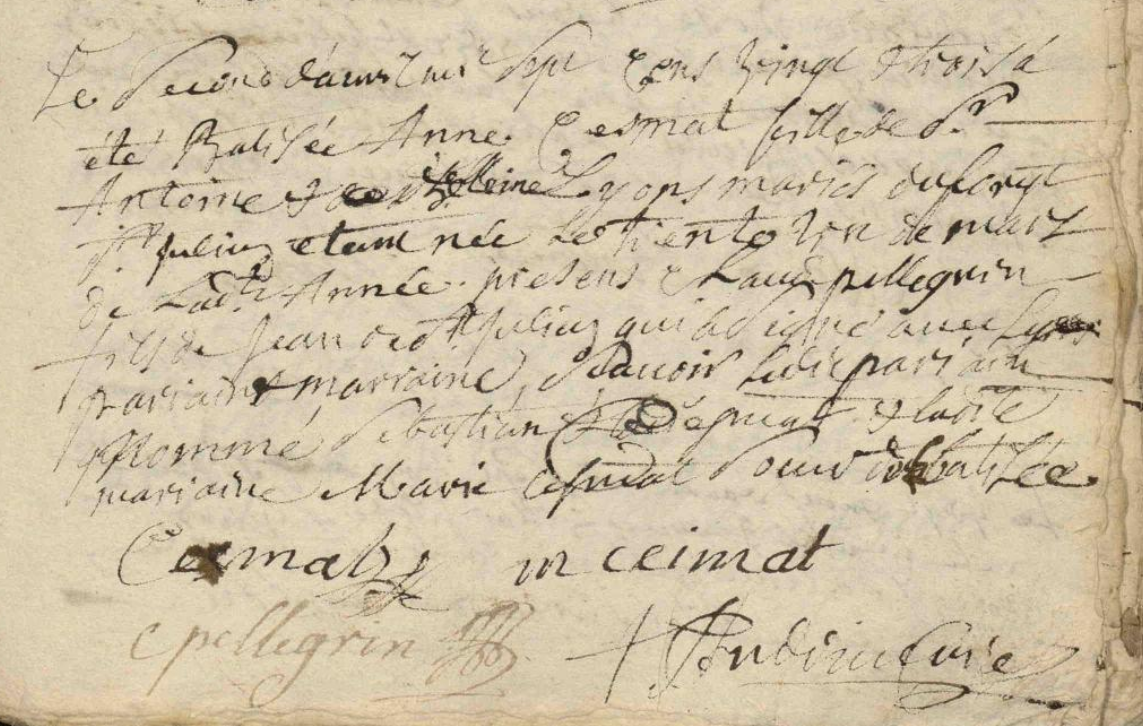 Le second d'avril mil sept cens vingt & trois a
été Batisée Anne Cesmat fille de Sr
Antoine & de Lyons mariés du lieu
St Julien etant née le trente un de mars
de Ladte Année. presens Claude pellegrin
fils de Jean de St Julien qui a signé avec Les
parrain & marraine, Scavoir Ledit parrain
Nommé Sebastian Cesmat & ladte
marraine Marie Cesmat Soeur de la batisée.
Cesmat m ceimat
c pellegrin Curé